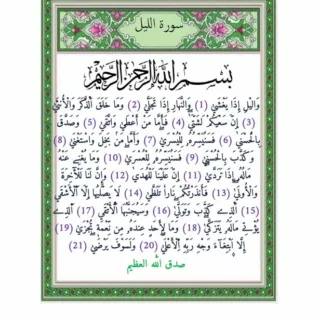 سورة الليل
بسم الله الرحمن الرحيم
وَالَّيْلِ إِذَا يَغْشَىٰ (1) وَالنَّهَارِ إِذَا تَجَلَّىٰ (2) وَمَا خَلَقَ الذَّكَرَ وَالْأُنثَىٰ
(3) إِنَّ سَعْيَكُمْ لَشَتَّىٰ (4) فَأَمَّا مَنْ أَعْطَىٰ وَاتَّقَىٰ (5) وَصَدَّقَ
بِالْحُسْنَىٰ (6) فَسَنُيَسِّرُهُ لِلْيُسْرَىٰ (7) وَأَمَّا مَنْ بَخِلَ وَاسْتَغْنَىٰ (8)
وَكَذَّبَ بِالْحُسْنَىٰ (9) فَسَنُيَسِّرُهُ لِلْعُسْرَىٰ (10) وَمَا يُغْنِي عَنْهُ
مَالُهُ إِذَا تَرَدَّىٰ (11) إِنَّ عَلَيْنَا لَلْهُدَىٰ (12) وَإِنَّ لَنَا لَلْآخِرَةَ
وَالْأُولَىٰ (13) فَأَنذَرْتُكُمْ نَارًا تَلَظَّىٰ (14) لَا يَصْلَاهَا إِلَّا الْأَشْقَى
(15) الَّذِي كَذَّبَ وَتَوَلَّىٰ (16) وَسَيُجَنَّبُهَا الْأَتْقَى (17) الَّذِي
يُؤْتِي مَالَهُ يَتَزَكَّىٰ (18) وَمَا لِأَحَدٍ عِندَهُ مِن نِّعْمَةٍ تُجْزَىٰ (19)
إِلَّا ابْتِغَاءَ وَجْهِ رَبِّهِ الْأَعْلَىٰ (20) وَلَسَوْفَ يَرْضَىٰ (21)
صدق الله العظيم